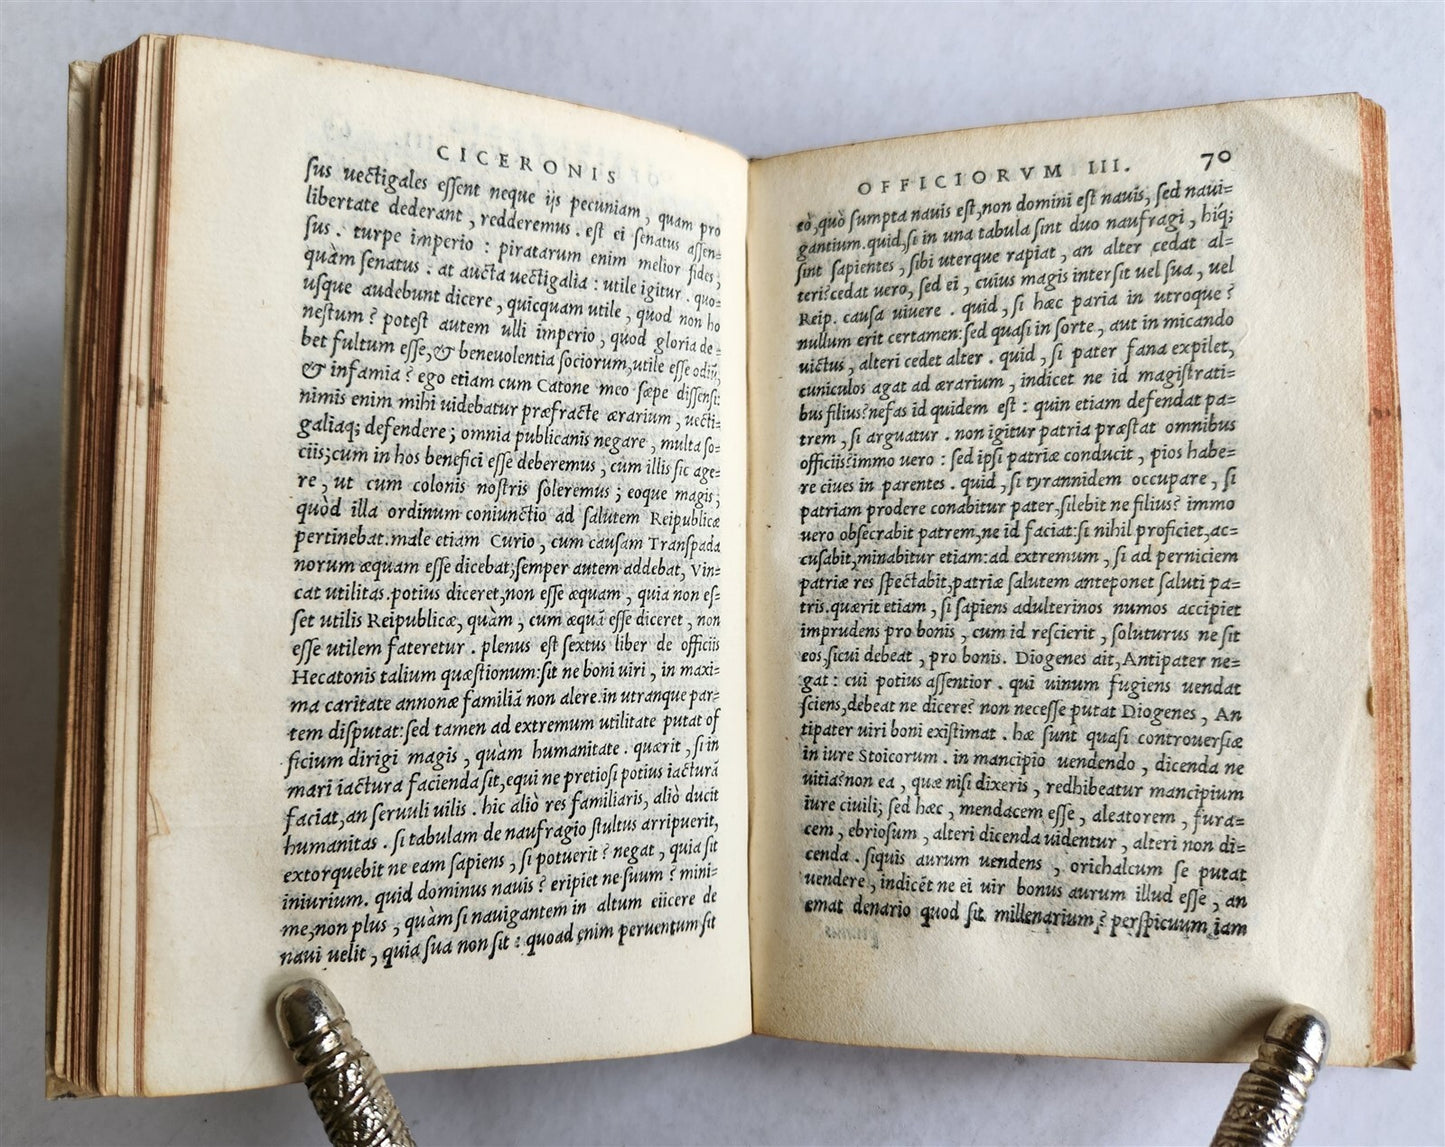 CICERONIS
sus uectigales essent neque ijs pecuniam, quam pro
libertate dederant, redderemus. est ei senatus assen=
sus. turpe imperio: piratarum enim melior fides,
quàm senatus. at aucta uectigalia: utile igitur. quo=
usque audebunt dicere, quicquam utile, quod non ho
nestum? potest autem ulli imperio, quod gloria de=
bet fultum esse, & beneuolentia sociorum, utile esse odiũ,
& infamia? ego etiam cum Catone meo sæpe dissensi:
nimis enim mihi uidebatur præfracte ærarium, uecti=
galiaq; defendere; omnia publicanis negare, multa so=
cijs; cum in hos benefici esse deberemus, cum illis sic age=
re, ut cum colonis nostris soleremus; eoque magis,
quòd illa ordinum coniunctio ad salutem Reipublicæ
pertinebat. male etiam Curio, cum causam Transpada
norum æquam esse dicebat; semper autem addebat, Vin=
cat utilitas. potius diceret, non esse æquam, quia non es=
set utilis Reipublicæ, quàm, cum æquã esse diceret, non
esse utilem fateretur. plenus est sextus liber de officiis
Hecatonis talium quæstionum: sit ne boni uiri, in maxi=
ma caritate annonæ familiã non alere. in utranque par=
tem disputat: sed tamen ad extremum utilitate putat of
ficium dirigi magis, quàm humanitate. quærit, si in
mari iactura facienda sit, equi ne pretiosi potius iacturã
faciat, an seruuli uilis. hic aliò res familiaris, aliò ducit
humanitas. si tabulam de naufragio stultus arripuerit,
extorquebit ne eam sapiens, si potuerit? negat, quia sit
iniurium. quid dominus nauis? eripiet ne suum? mini=
me, non plus, quàm si nauigantem in altum eiicere de
naui uelit, quia sua non sit: quoad enim peruentum sit
OFFICIORVM III. 70
eò, quò sumpta nauis est, non domini est nauis, sed naui=
gantium. quid, si in una tabula sint duo naufragi, hiq;
sint sapientes, sibi uterque rapiat, an alter cedat al=
teri? cedat uero, sed ei, cuius magis intersit uel sua, uel
Reip. causa uiuere. quid, si hæc paria in utroque?
nullum erit certamen: sed quasi in sorte, aut in micando
uictus, alteri cedet alter. quid, si pater fana expilet,
cuniculos agat ad ærarium, indicet ne id magistrati=
bus filius? nefas id quidem est: quin etiam defendat pa=
trem, si arguatur. non igitur patria præstat omnibus
officiis? immo uero: sed ipsi patriæ conducit, pios habe=
re ciues in parentes. quid, si tyrannidem occupare, si
patriam prodere conabitur pater. silebit ne filius? immo
uero obsecrabit patrem, ne id faciat: si nihil proficiet, ac=
cusabit, minabitur etiam: ad extremum, si ad perniciem
patriæ res spectabit, patriæ salutem anteponet saluti pa=
tris. quærit etiam, si sapiens adulterinos numos accipiet
imprudens pro bonis, cum id rescierit, soluturus ne sit
eos, sicui debeat, pro bonis. Diogenes ait, Antipater ne=
gat: cui potius assentior. qui uinum fugiens uendat
sciens, debeat ne dicere? non necesse putat Diogenes, An
tipater uiri boni existimat. hæ sunt quasi controuersiæ
in iure Stoicorum. in mancipio uendendo, dicenda ne
uitia? non ea, quæ nisi dixeris, redhibeatur mancipium
iure ciuili; sed hæc, mendacem esse, aleatorem, fura=
cem, ebriosum, alteri dicenda uidentur, alteri non di=
cenda. siquis aurum uendens, orichalcum se putat
uendere, indicet ne ei uir bonus aurum illud esse, an
emat denario quod sit millenarium? perspicuum iam